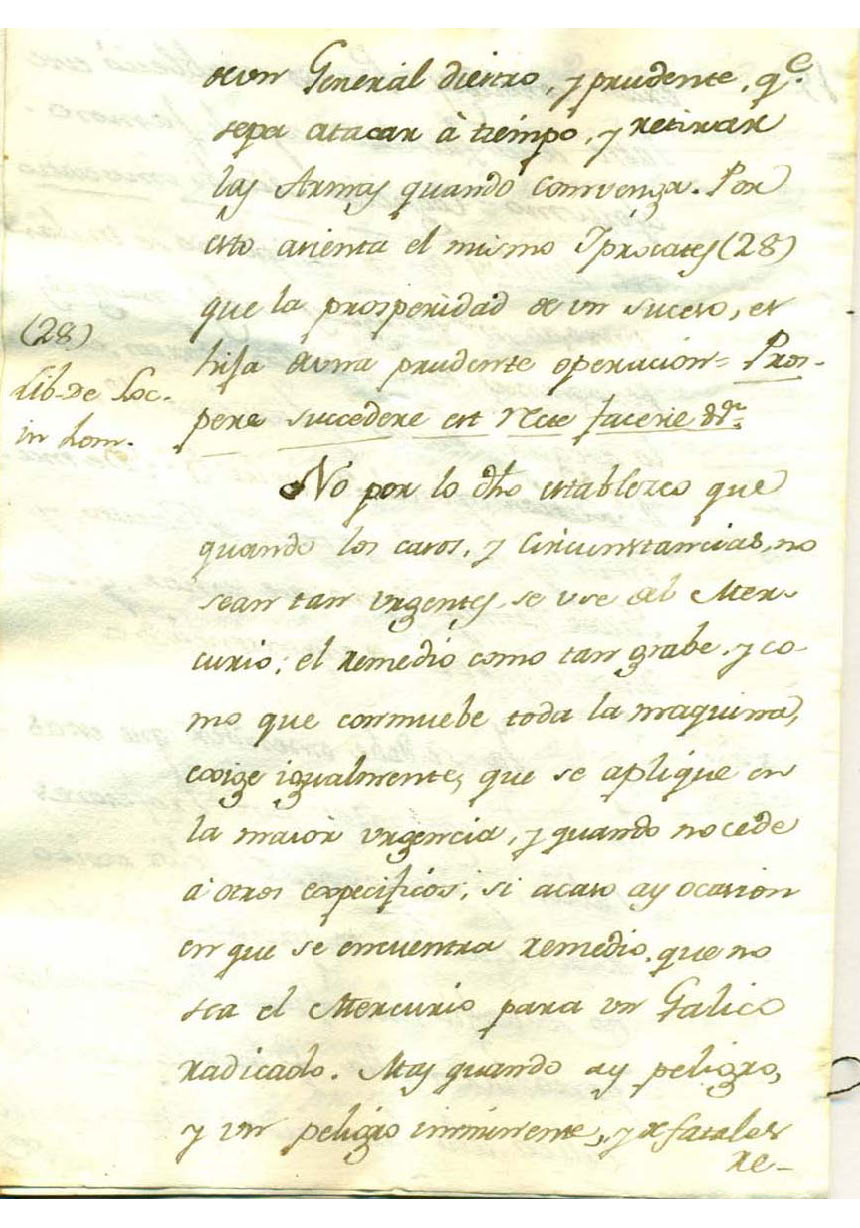 de un General diestro, y prudente, q.e
sepa atacar à tiempo, y retirar
las Armas quando convenga. Por
esto asienta el mismo Ypocrates (28)
que la prosperidad de un suceso, es
hija de una prudente operacion= Pros-
pere succedere est recte facere &.
(28)
Lib. de Loc.
in hom.
No por lo dho establezco que
quando los casos, y Circunstancias, no
sean tan urgentes, se use del Mer-
curio; el remedio como tan grabe, y co-
mo que conmuebe toda la maquina,
exige igualmente, que se aplique en
la maior urgencia, y quando no cede
à otros expecificos; si acaso ay ocasion
en que se encuentra remedio, que no
sea el Mercurio para un Galico
radicado. Mas quando ay peligro,
y un peligro imminente, y de fatales
re-